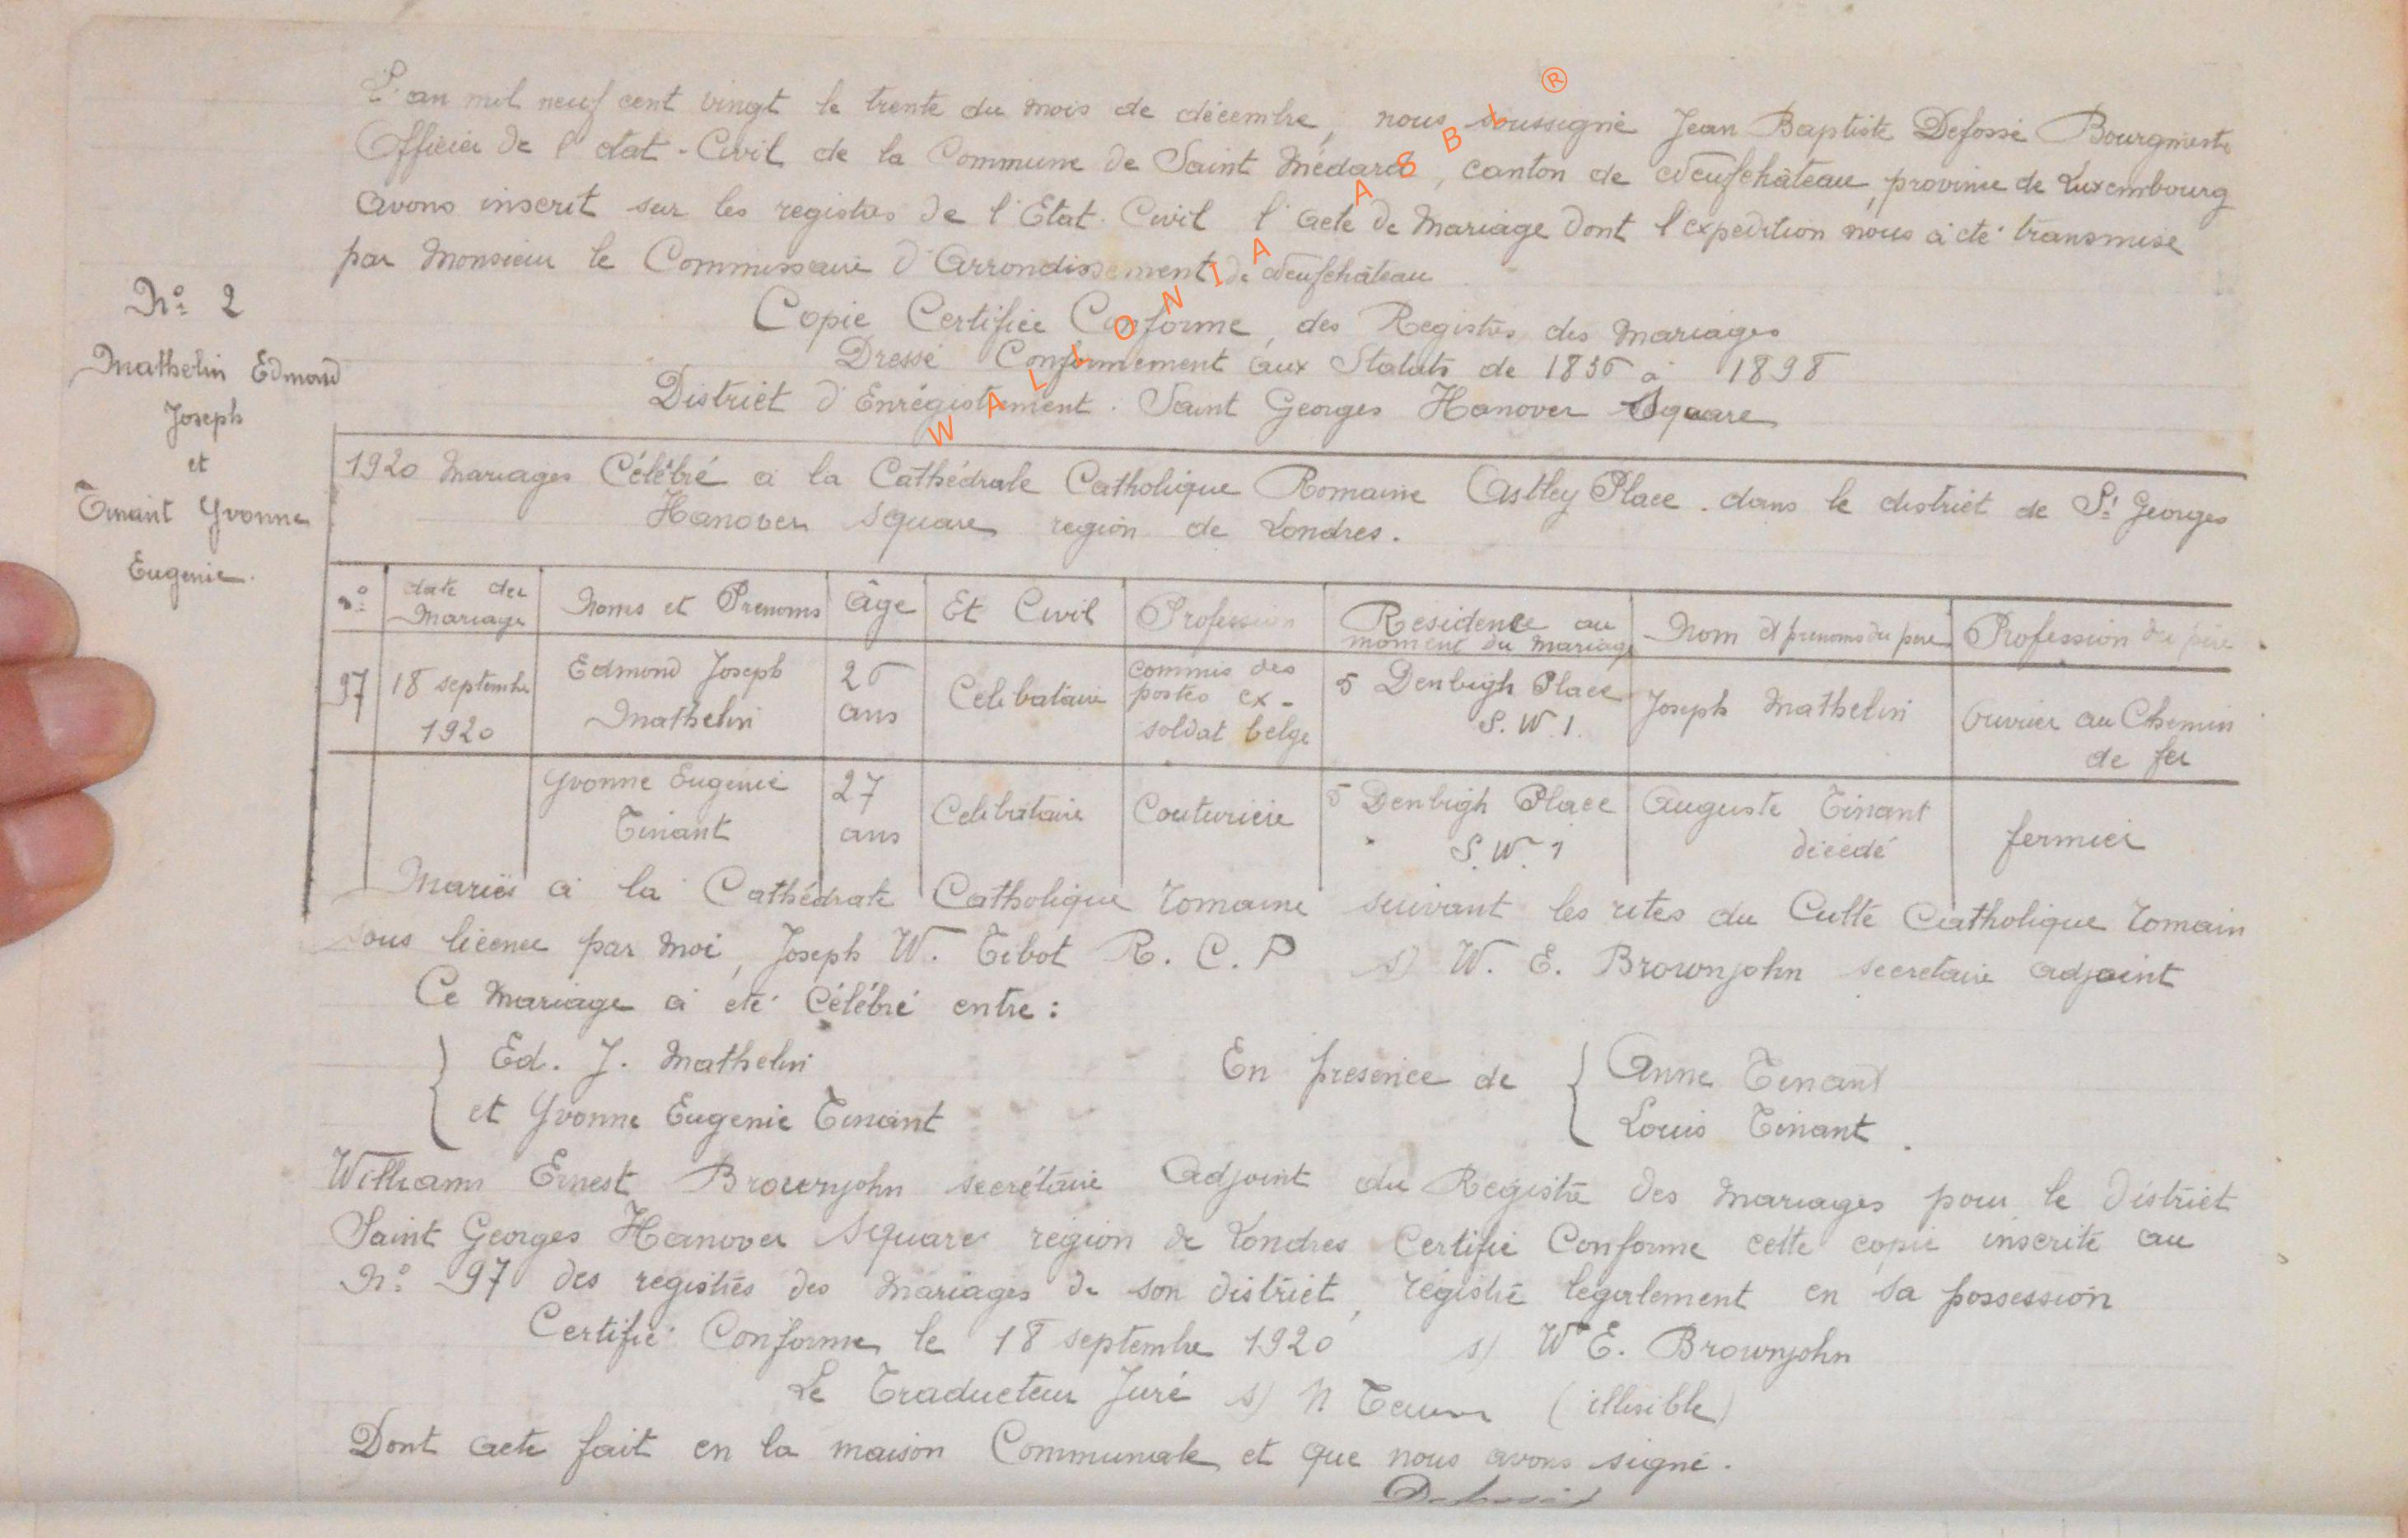 L'an mil neuf cent vingt le trente du mois de décembre, nous soussigné Jean Baptiste Defossé Bourgmestre
Officier de l'état-Civil de la Commune de Saint Médard, canton de Neufchâteau, province de Luxembourg
avons inscrit sur les registres de l'Etat Civil l'acte de Mariage dont l'expedition nous a été transmise
par Monsieur le Commissaire d'Arrondissement de Neufchâteau
Copie Certifiée Conforme, des Registres des Mariages
Dressé Conformement aux Statuts de 1836 à 1898
District d'Enrégistrement : Saint Georges Hanover Square
WALLONIA ASBL ®
N° 2
Mathelin Edmond
Joseph
et
Tinant Yvonne
Eugenie.
1920 Mariages Célébré à la Cathédrale Catholique Romaine Astley Place. dans le district de St Georges
Hanover Square region de Londres.
N° date du Mariage Noms et Prenoms âge Et Civil Profession Residence au moment du Mariage Nom et prenoms du pere Profession du pere
97 18 septembre 1920 Edmond Joseph Mathelin 26 ans Celibataire commis des postes ex-soldat belge 5 Denbigh Place S.W.1. Joseph Mathelin Ouvrier au Chemin de fer
Yvonne Eugenie Tinant 27 ans Celibataire Couturière 5 Denbigh Place S.W.1 Auguste Tinant décédé fermier
Mariés à la Cathédrale Catholique romaine suivant les rites du Culte Catholique romain
sous licence par moi, Joseph W. Tibot R. C. P s) W. E. Brownjohn secretaire adjoint
Ce Mariage a été Célébré entre :
Ed. J. Mathelin
et Yvonne Eugenie Tinant
En presence de
Anne Tinant
Louis Tinant.
Williams Ernest Brownjohn secrétaire Adjoint du Registre des Mariages pour le District
Saint Georges Hanover Square region de Londres Certifie Conforme cette copie inscrite au
N° 97 des registres des Mariages de son district, régistre legalement en sa possession
Certifié Conforme le 18 septembre 1920 s) W E. Brownjohn
Le Traducteur Juré s) N (illisible)
Dont acte fait en la maison Communale et que nous avons signé.